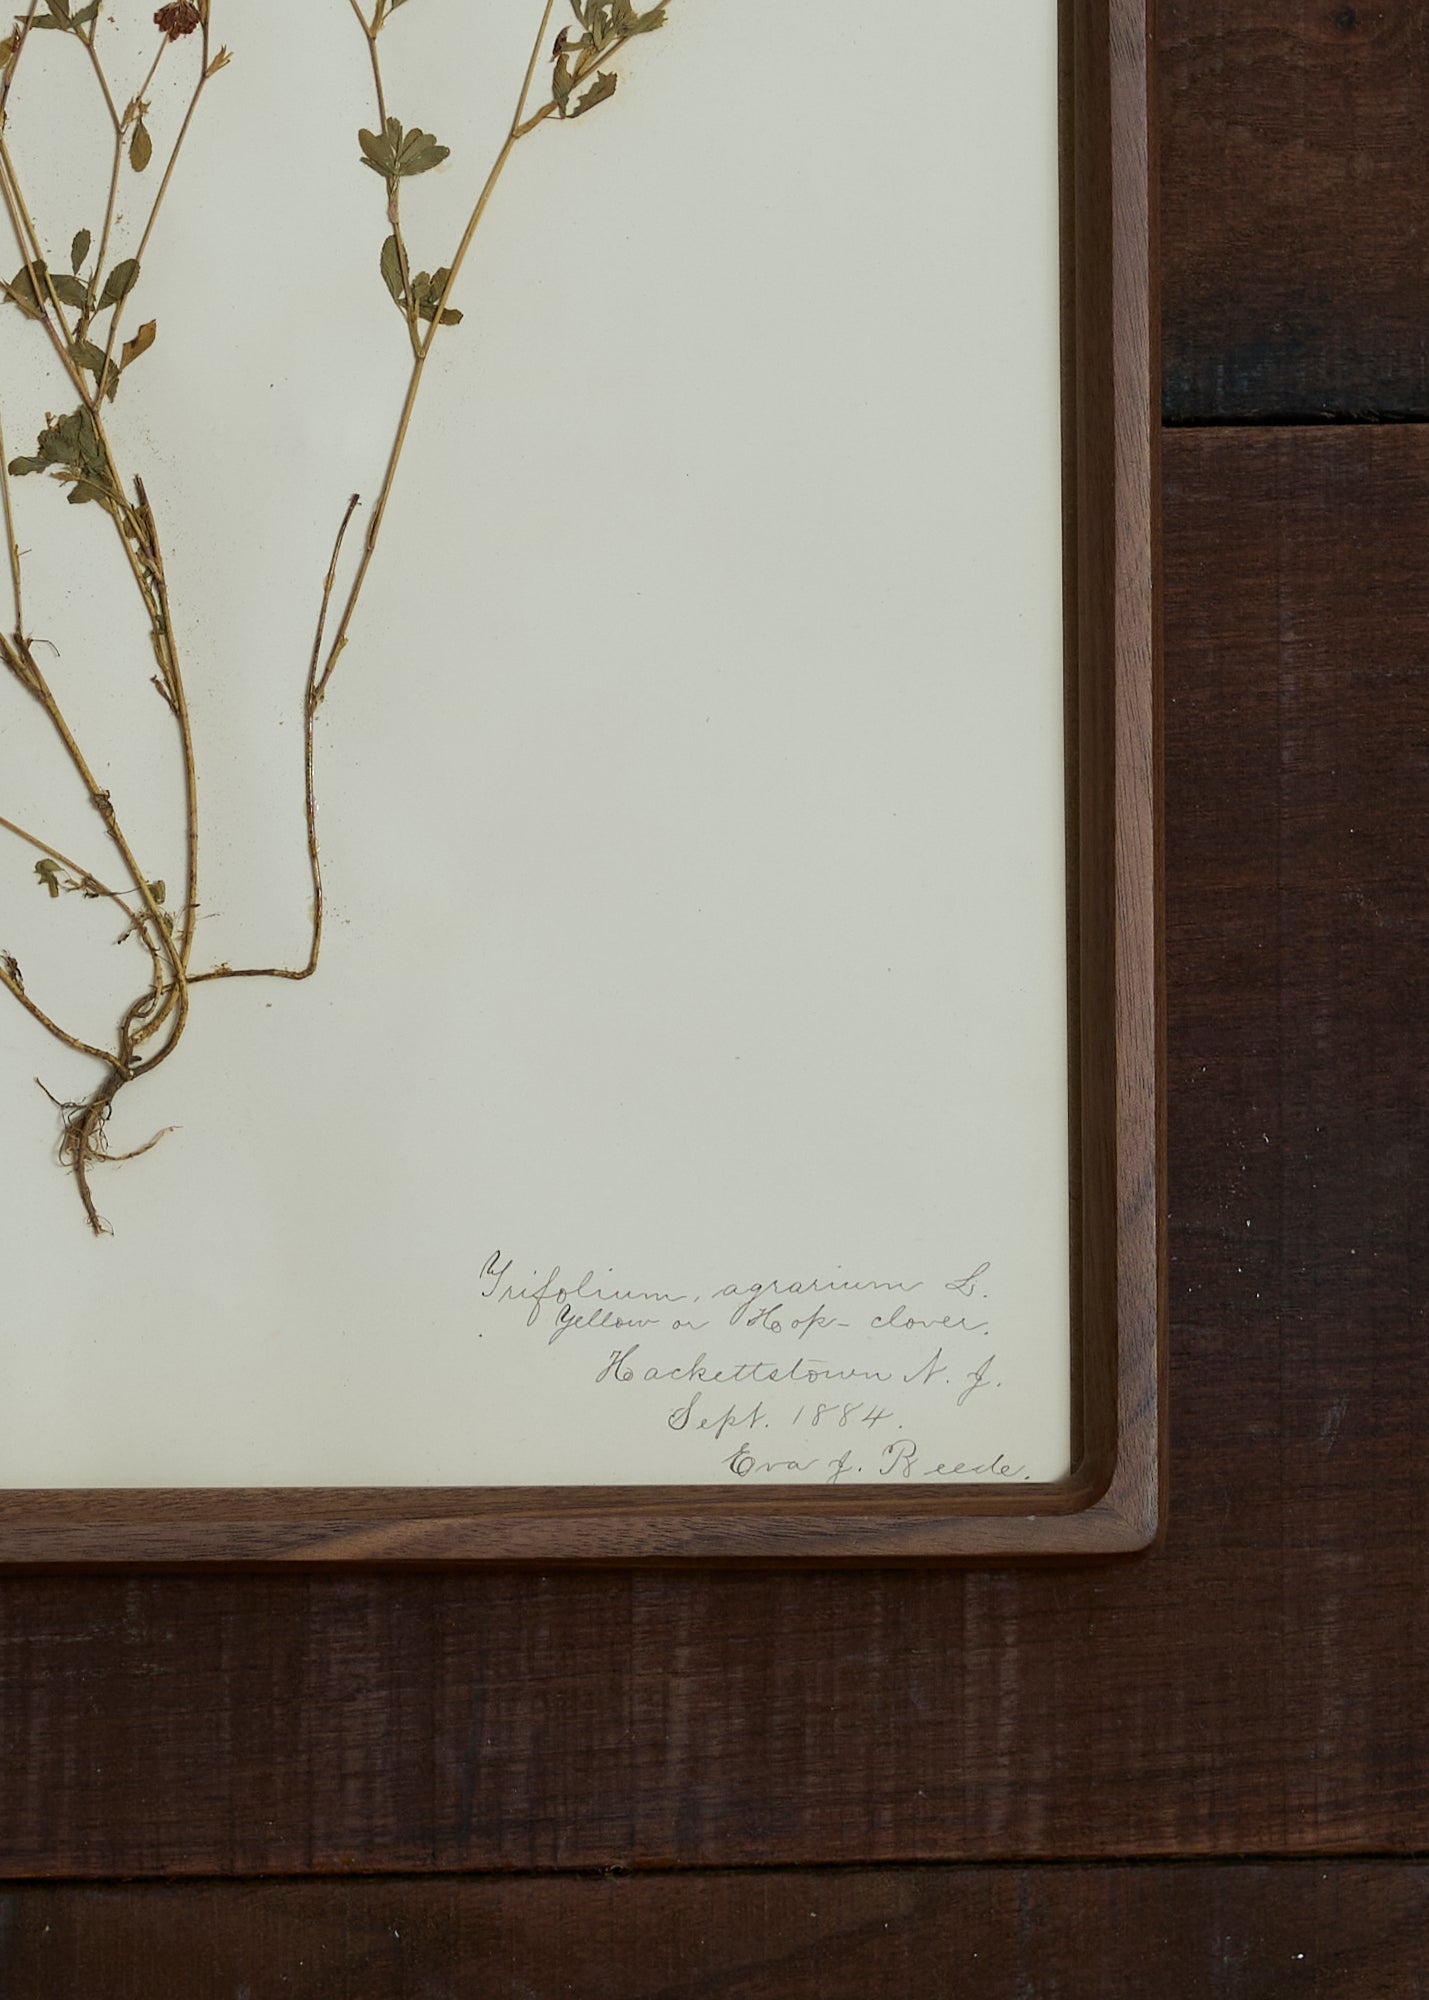 Trifolium, agrarium L.
Yellow or Hop-clover.
Hackettstown N. J.
Sept. 1884.
Eva J. Reede.